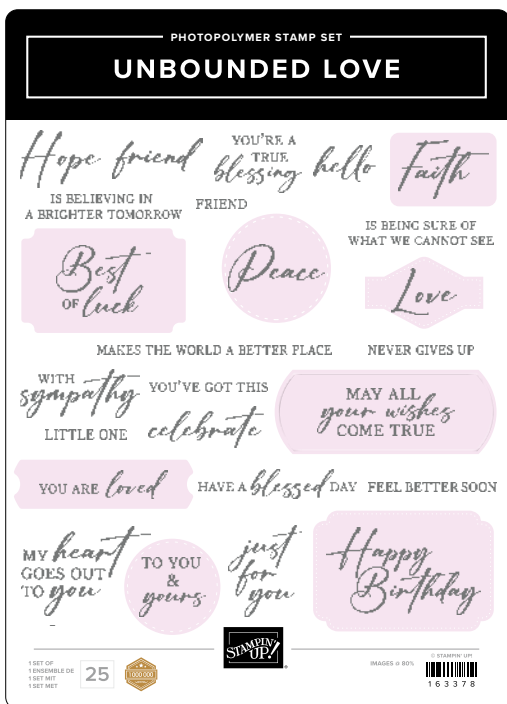 PHOTOPOLYMER STAMP SET
UNBOUNDED LOVE
Hope
friend
YOU'RE A
TRUE
blessing
hello
Faith
IS BELIEVING IN
A BRIGHTER TOMORROW
FRIEND
IS BEING SURE OF
WHAT WE CANNOT SEE
Best
OF luck
Peace
Love
MAKES THE WORLD A BETTER PLACE
NEVER GIVES UP
WITH
sympathy
YOU'VE GOT THIS
LITTLE ONE
celebrate
MAY ALL
your wishes
COME TRUE
YOU ARE loved
HAVE A blessed DAY
FEEL BETTER SOON
MY heart
GOES OUT
TO you
TO YOU
&
yours
just
for
you
Happy
Birthday
1 SET OF
1 ENSEMBLE DE
1 SET MIT
1 SET MET
25
1 000 000
STAMPIN' UP!
IMAGES @ 80%
© STAMPIN' UP!
163378